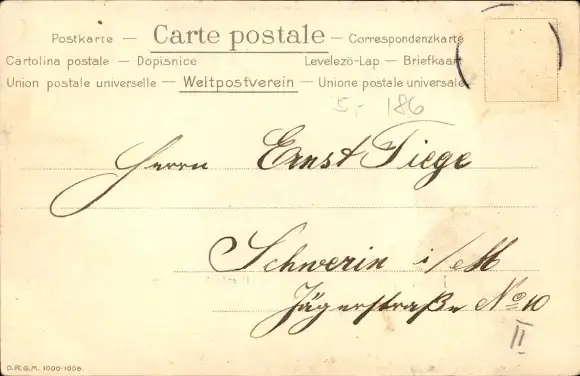 Postkarte — Carte postale — Correspondenzkarte
Cartolina postale — Dopisnice Levelezö-Lap — Briefkaart
Union postale universelle — Weltpostverein — Unione postale universale
5,- 186
Herrn Ernst Tiege
Schwerin i/M
Jägerstraße No 10
II
D.R.G.M. 1006-1006.